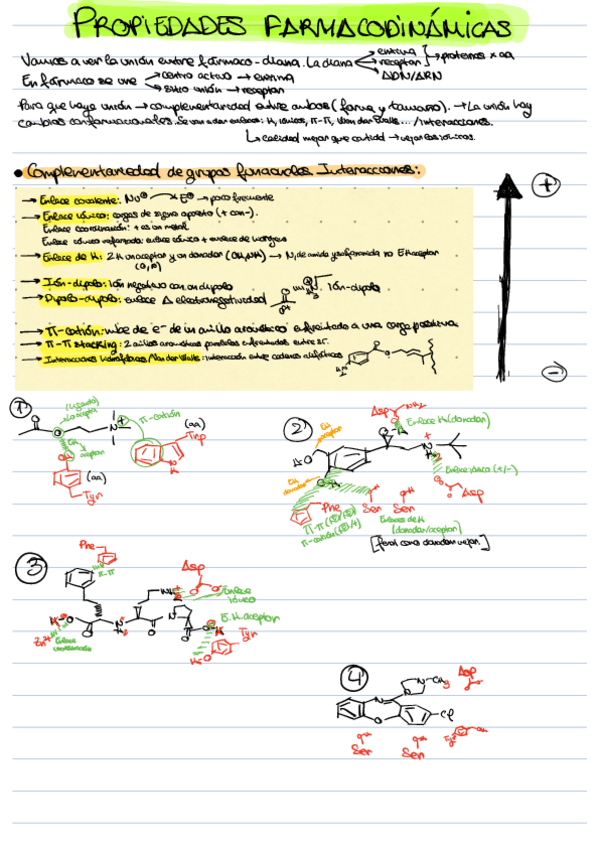 PROPIEDADES FARMACODINÁMICAS
Vamos a ver la unión entre fármaco-diana. La diana
enzima
receptor
→ proteínas x aa
ADN/ARN
En fármaco se une
centro activo → enzima
sitio unión → receptor
Para que haya unión → complementariedad entre ambos (forma y tamaño). → La unión hay
cambios conformacionales. Se van a dar enlaces: H, iónicos, π-π, Van der Walls... / interacciones.
↳ calidad mejor que cantidad →
• Complementariedad de grupos funcionales. Interacciones:
→ Enlace covalente: Nu⊖ E⊕ → poco frecuente
→ Enlace iónico: cargas de signo opuesto (+ con -).
Enlace coordinación: + es un metal
Enlace iónico reforzado: enlace iónico + enlace de hidrógeno
→ Enlace de H: 2 H un aceptor y un donador (OH, NH) → N, de amida y sulfonamida no EH aceptor
(O, N)
→ Ión-dipolo: ión negativo con un dipolo
Ión-dipolo
→ Dipolo-dipolo: enlace Δ electronegatividad
→ π-catión: nube de e⁻ de un anillo aromático enfrentado a una carga positiva
→ π-π stacking: 2 anillos aromáticos paralelos enfrentados entre sí.
→ Interacciones hidrófobas/Van der Walls: interacción entre cadenas alifáticas
+
-
1
(Ligando)
O acepta
N
+
π-catión
(aa)
Trp
EH
aceptor
OH
(aa)
Tyr
2
Asp
NH₂
Enlace H (donador)
EH
aceptor
EH
donador
Enlace iónico (+/-)
Asp
Phe
Ser
Ser
Enlaces de H
(donador/aceptor)
[fenol como donador mejor]
3
Phe
π-π
Asp
Enlace
iónico
E.H aceptor
Tyr
H-O
Zn²⁺
Enlace
coordinación
4
N-CH₃
Asp
N
O
Cl
Ser
Ser
Tyr